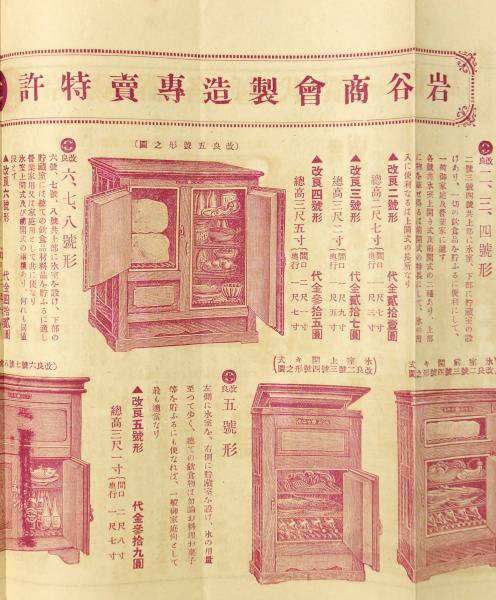 許特賣專造製會商谷岩
改良 二、三、四號形
二號三號四號共上部に氷室、下部に貯藏室の設
けあり、一切の飲食品を貯ふるに便利にして、
一般御家庭及營業家に適す
各號共氷室上開き式及前開式の二種あり、上部
に物を載せ得るは前開式の特長にして、氷の出
入に便利なるは上開式の長所なり
▲改良二號形 代金貳拾壹圓
總高二尺七寸 間口 一尺七寸 奥行 一尺三寸
▲改良三號形 代金貳拾七圓
總高三尺二寸 間口 一尺九寸
▲改良四號形 代金參拾五圓
總高三尺五寸 間口 二尺一寸
(改良五號形之圖)
改良 六、七、八號形
六號、七號、八號共上部に氷室を設け、下部の
貯藏室には總ての飲食品材料品を貯ふるに適し
營業家用又は家庭用として共に便なり
氷室上開式及び前開式の兩種あり、何れも同値
段とす
▲改良六號形 代金四拾貳圓
氷室前開キ式
改良二號三號四號形之圖
氷室上開キ式
改良二號三號四號形之圖
改良 五號形
左側に氷室を、右側に貯藏室を設け、氷の用量
至つて少く、總ての飲食物は勿論お料理お菓子
等を貯ふるにも便なれば、一般御家庭向として
最も適當なり
▲改良五號形 代金參拾九圓
總高三尺一寸 間口 二尺八寸 奥行 一尺七寸
改良六號七號八號